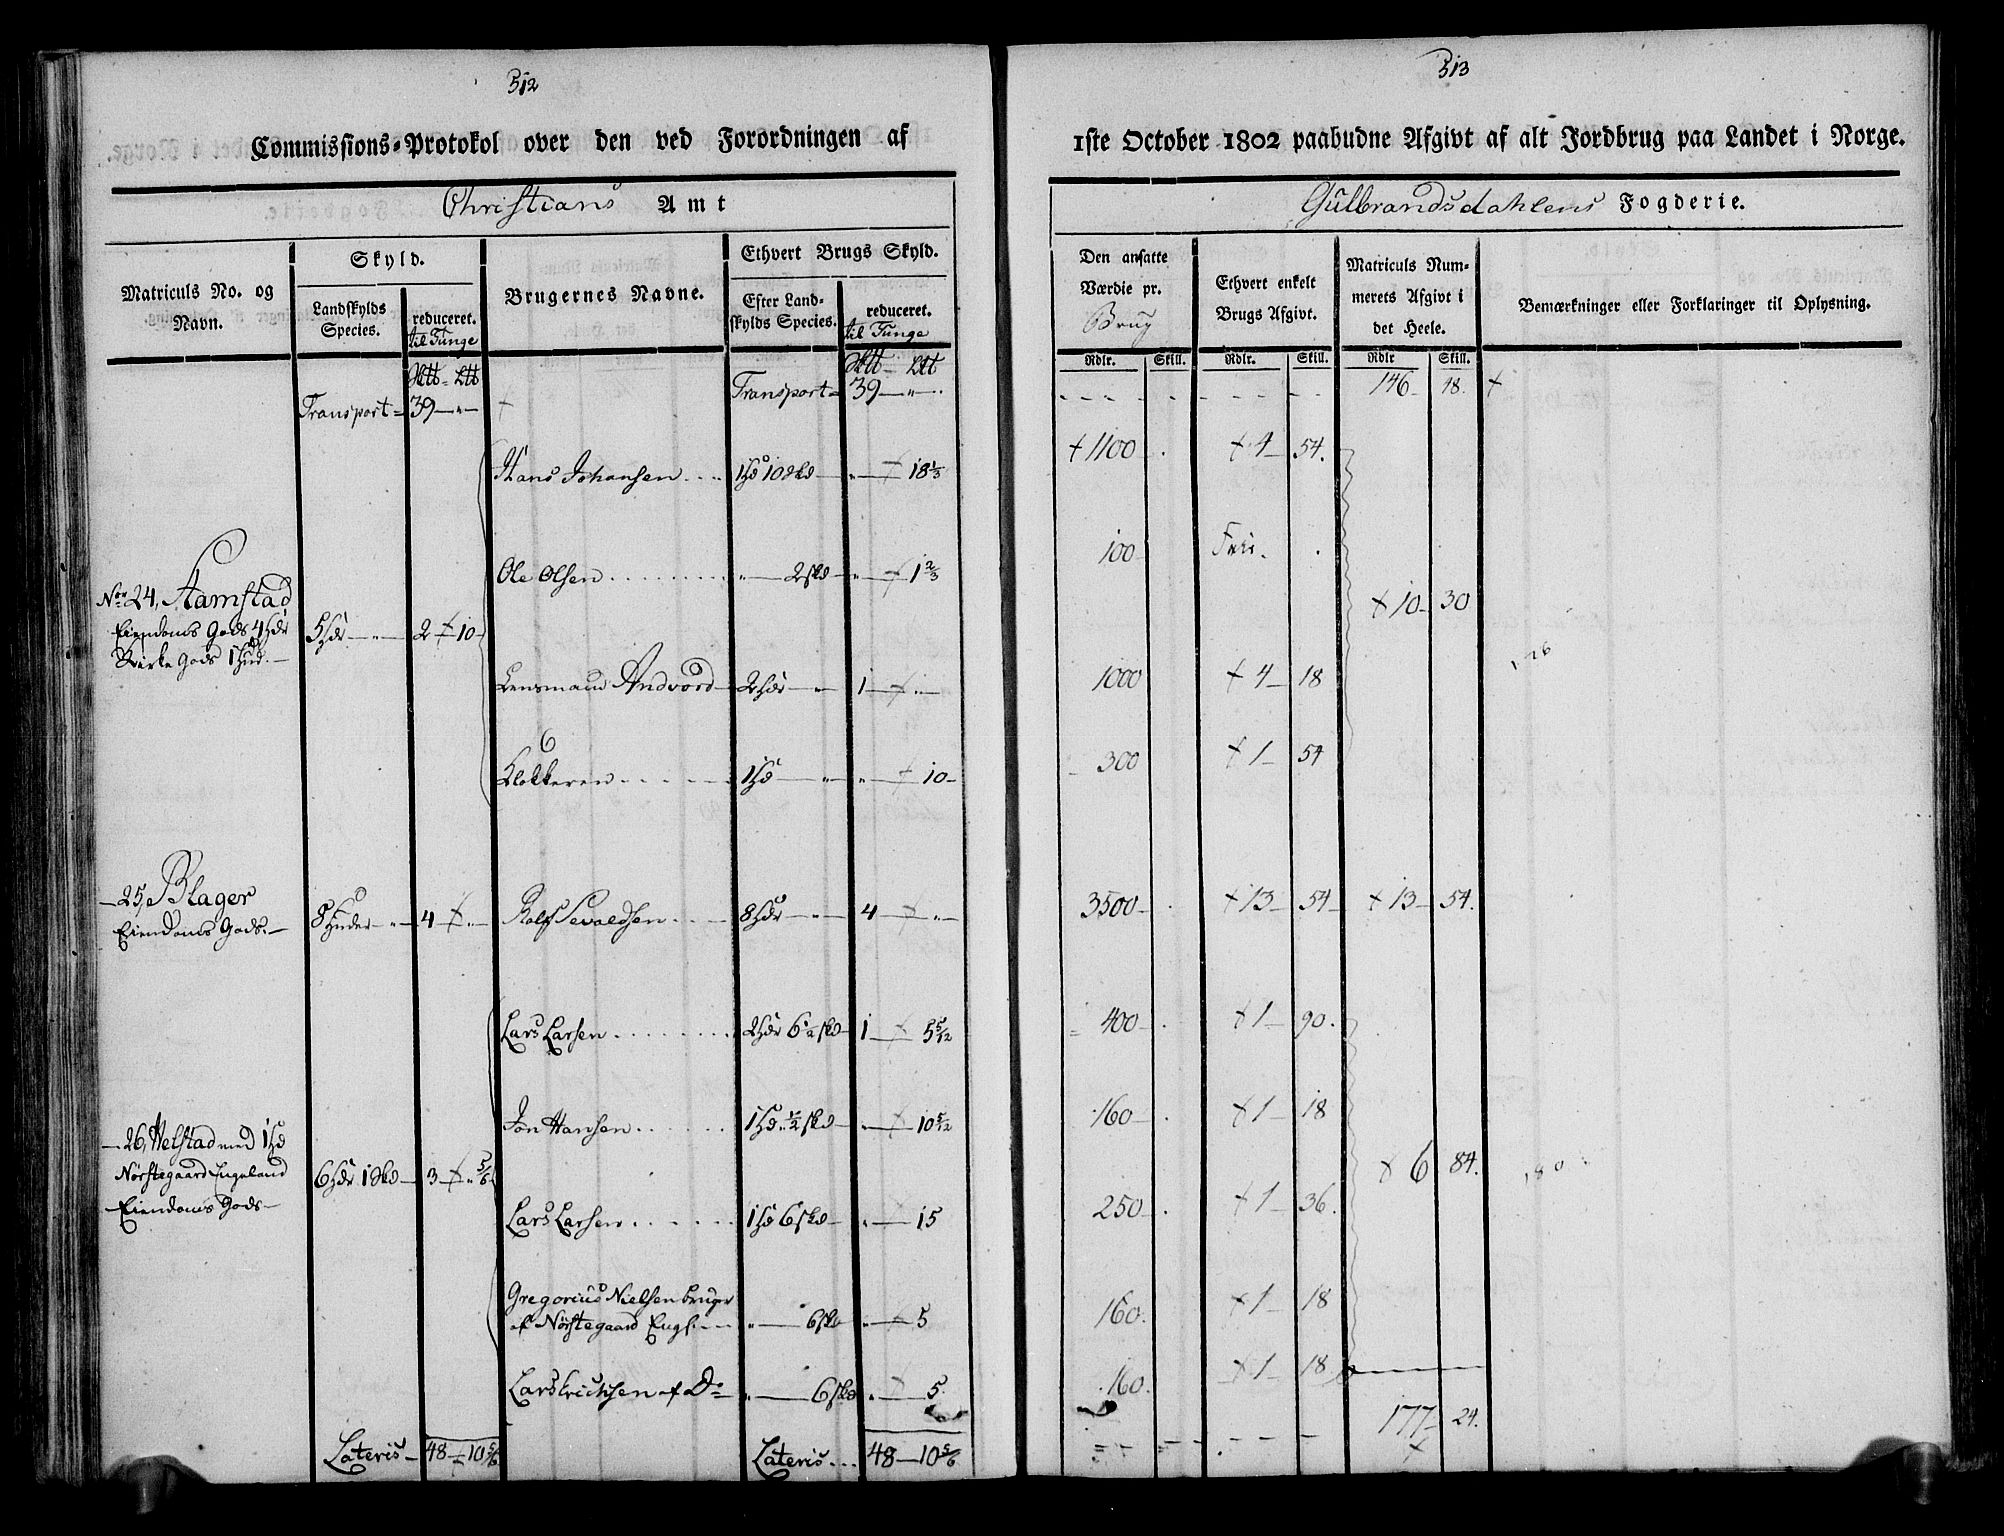 312
Commissions-Protokol over den ved Forordningen af
Christians Amt
Matriculs No. og Navn.
Skyld.
Landskylds Species.
reduceret.
til Tunge
Brugernes Navne.
Ethvert Brugs Skyld.
Efter Landskylds Species.
reduceret.
til Tunge
Transport = 39 — " — Transport = 39 — " —
Hans Johansen 1 Hd 10 skd " — 18 1/3
Ole Olsen " — 2 skd " — 1 2/3
No 24, Aamstad
Eiendoms Gods 4 Hdr 5 Hdr — " — 2 — 10
Kirke Gods 1 Hud. —
Lensmand Andvord 2 Hdr — " — 1 — " —
6
Klokkeren 1 Hd — " " — 10 —
— 25, Blager
Eiendoms Gods. — 8 Huder — " — 4 — " — Rolf Sevaldsen 8 Hdr — " — 4 — " —
Lars Larsen 2 Hdr 6 1/2 skd — 1 — 5 5/12
Jon Hansen 1 Hd. 1/2 skd " — 10 5/12
— 26, Helstad med 1 Hd
Nørstegaard Engeland 6 Hdr 1 Skd — 3 — " 5/6
Eiendoms Gods —
Lars Larsen 1 Hd 6 skd — " — 15
Gregorius Nielsen bruger
af Nørstegaard Engl. " — 6 skd " — 5
Lars Erichsen af Do " — 6 skd " — 5
Lateris — 48 — 10 5/6 Lateris 48 — 10 5/6
313
1ste October 1802 paabudne Afgivt af alt Jordbrug paa Landet i Norge.
Gulbrandsdahlens Fogderie.
Den ansatte Værdie pr.
Brug
Ethvert enkelt Brugs Afgivt.
Matriculs Nummerets Afgivt i det Heele.
Bemærkninger eller Forklaringer til Oplysning.
Rdlr. Skill. Rdlr. Skill. Rdlr Skill.
146 18. +
+ 1100 + 4 — 54.
100 Frie.
+ 10 — 30
1000 + 4 — 18
300 + 1 — 54
3500 + 13 — 54 + 13 — 54.
400 + 1 — 90.
160 + 1 — 18
+ 6 84.
250 + 1 — 36.
160. + 1 — 18
160. + 1 — 18
177 24.